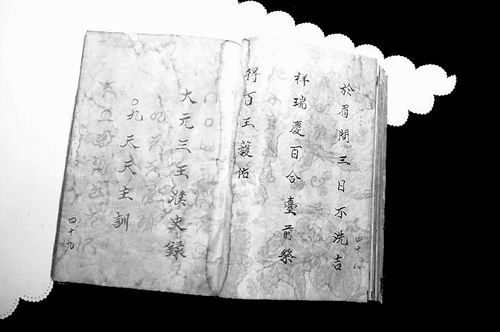 於眉間三日不洗吉
祥瑞慶百合臺前祭
得百王護佑
四十八
大元三王濮史錄
九天天主訓
四十九